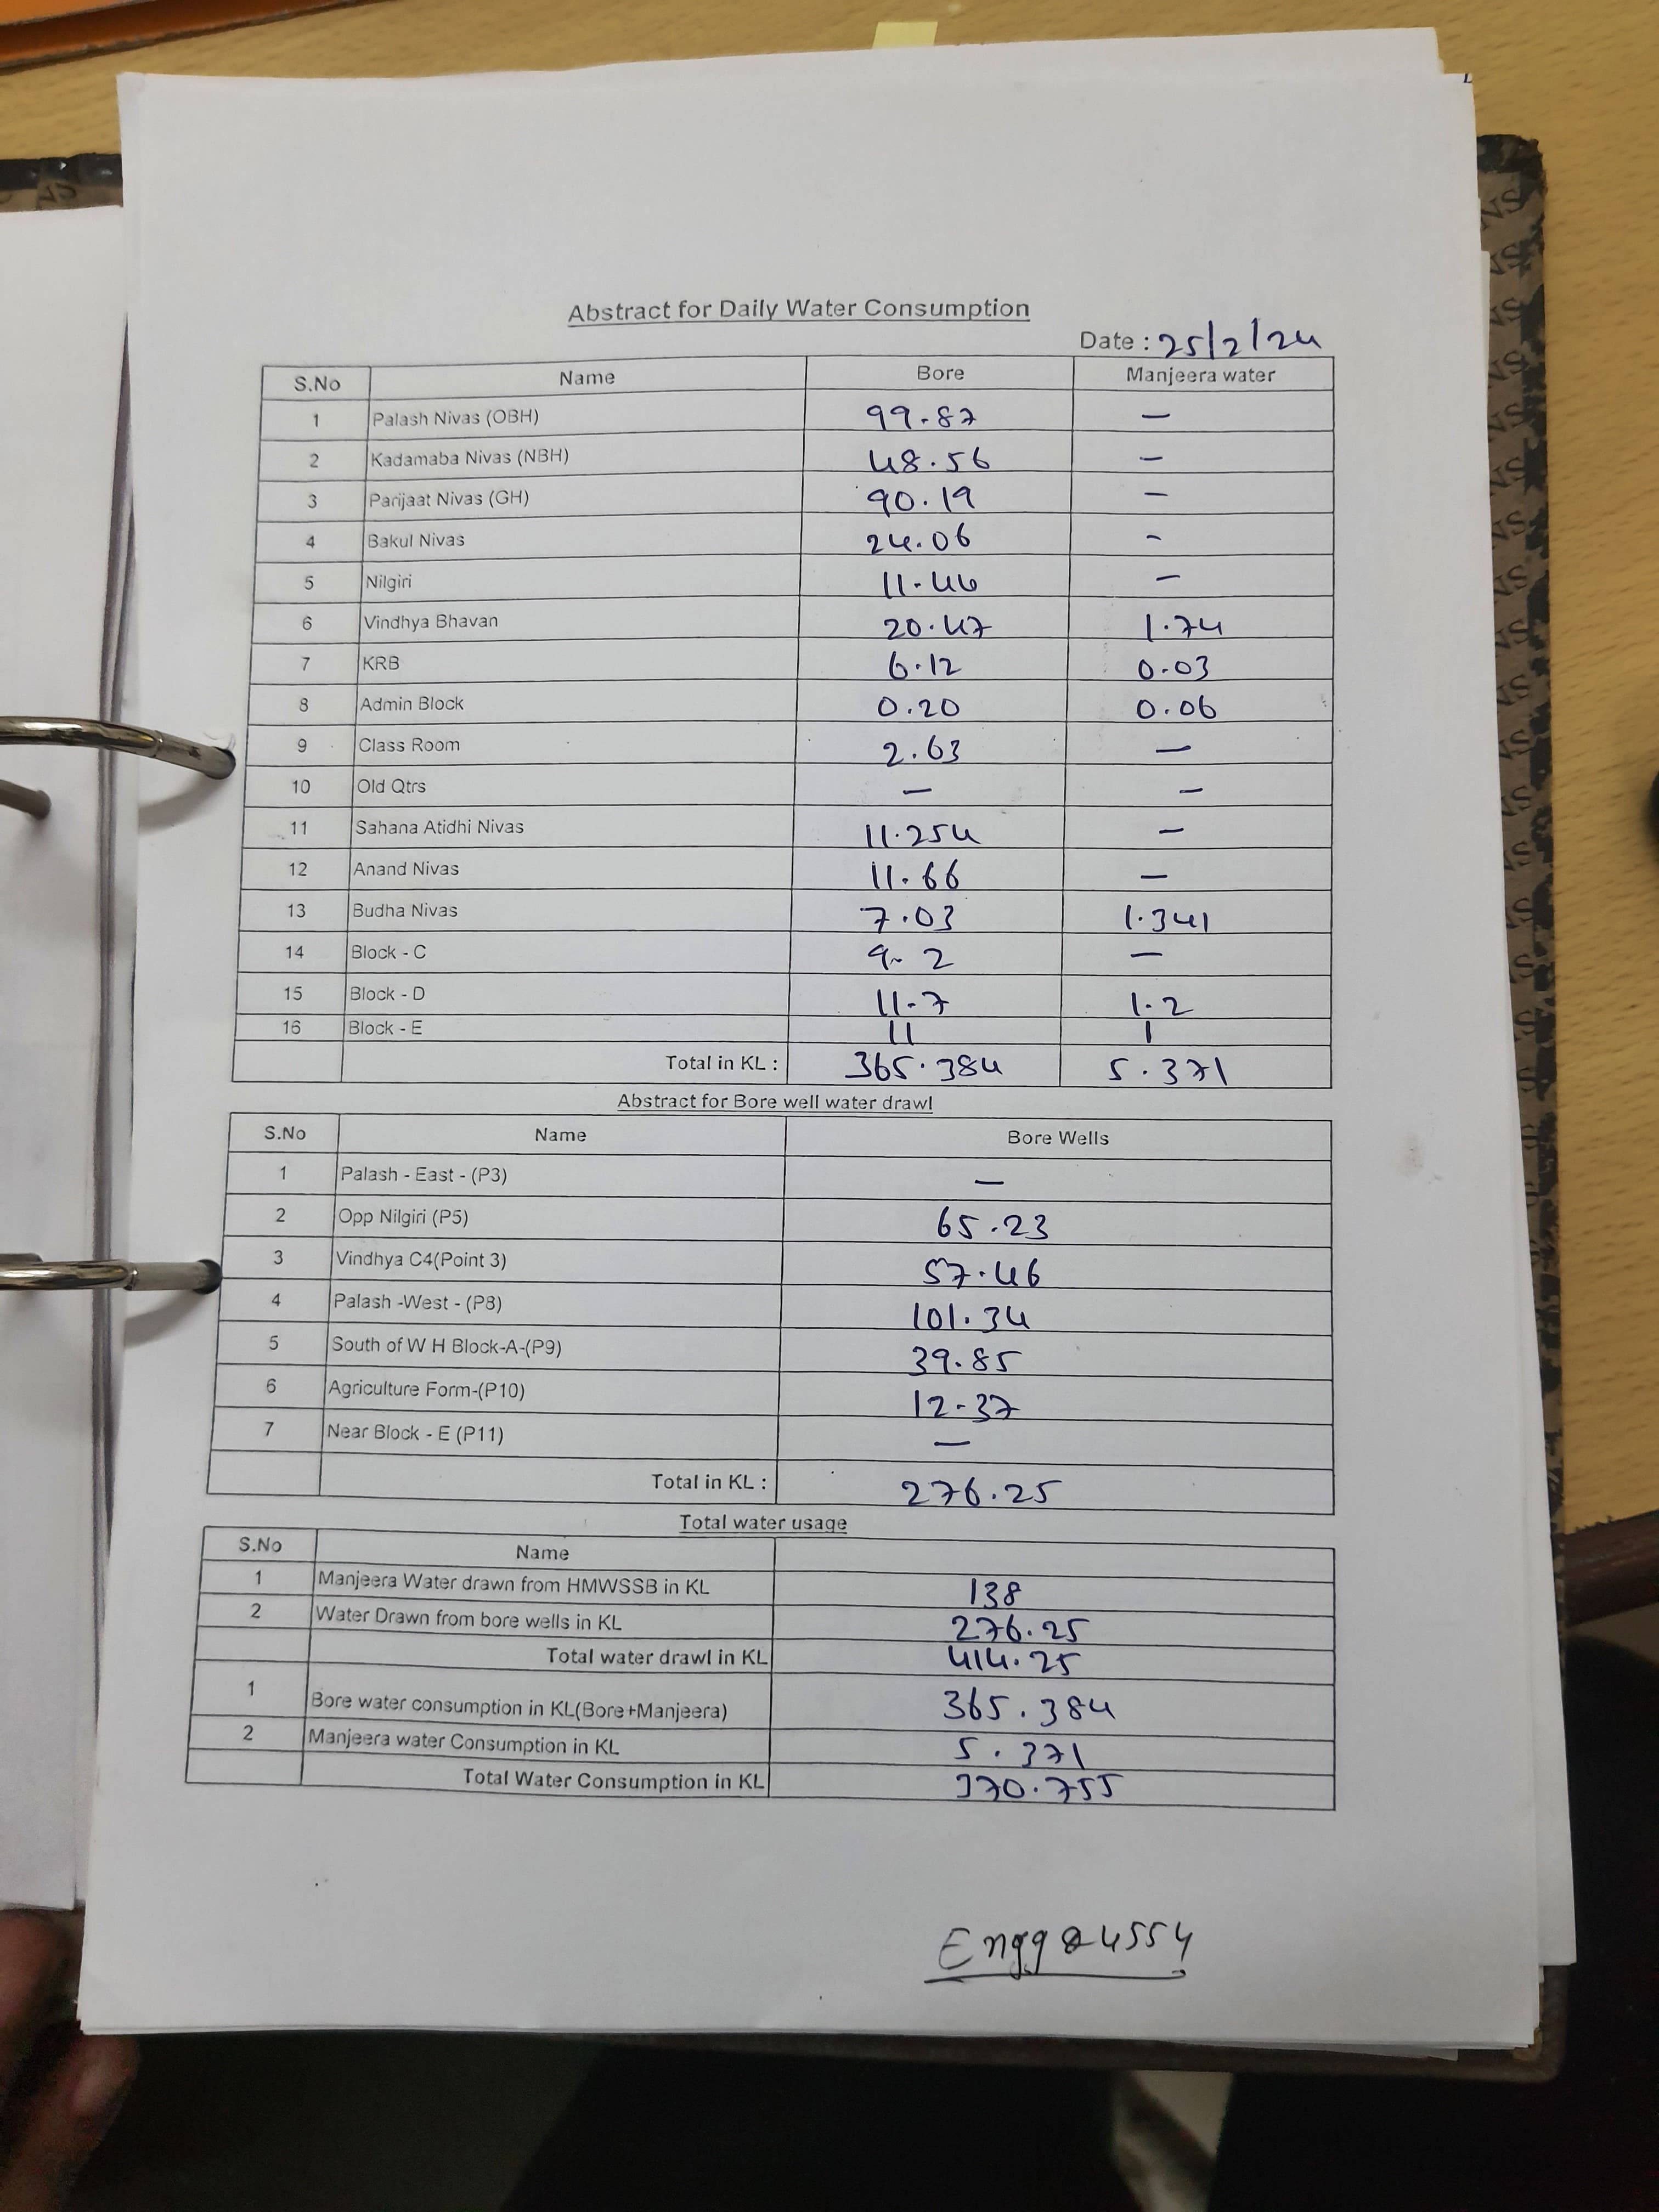 Abstract for Daily Water Consumption
Date : 25/2/24
S.No Name Bore Manjeera water
1 Palash Nivas (OBH) 99.87 —
2 Kadamaba Nivas (NBH) 48.56 —
3 Parijaat Nivas (GH) 90.19 —
4 Bakul Nivas 24.06 -
5 Nilgiri 11.46 —
6 Vindhya Bhavan 20.47 1.74
7 KRB 6.12 0.03
8 Admin Block 0.20 0.06
9 Class Room 2.63 —
10 Old Qtrs — —
11 Sahana Atidhi Nivas 11.254 —
12 Anand Nivas 11.66 —
13 Budha Nivas 7.03 1.341
14 Block - C 9.2 —
15 Block - D 11.7 1.2
16 Block - E 11 1
Total in KL : 365.384 5.371
Abstract for Bore well water drawl
S.No Name Bore Wells
1 Palash - East - (P3) —
2 Opp Nilgiri (P5) 65.23
3 Vindhya C4(Point 3) 57.46
4 Palash -West - (P8) 101.34
5 South of W H Block-A-(P9) 39.85
6 Agriculture Form-(P10) 12.37
7 Near Block - E (P11) —
Total in KL : 276.25
Total water usage
S.No Name
1 Manjeera Water drawn from HMWSSB in KL 138
2 Water Drawn from bore wells in KL 276.25
Total water drawl in KL 414.25
1 Bore water consumption in KL(Bore+Manjeera) 365.384
2 Manjeera water Consumption in KL 5.371
Total Water Consumption in KL 370.755